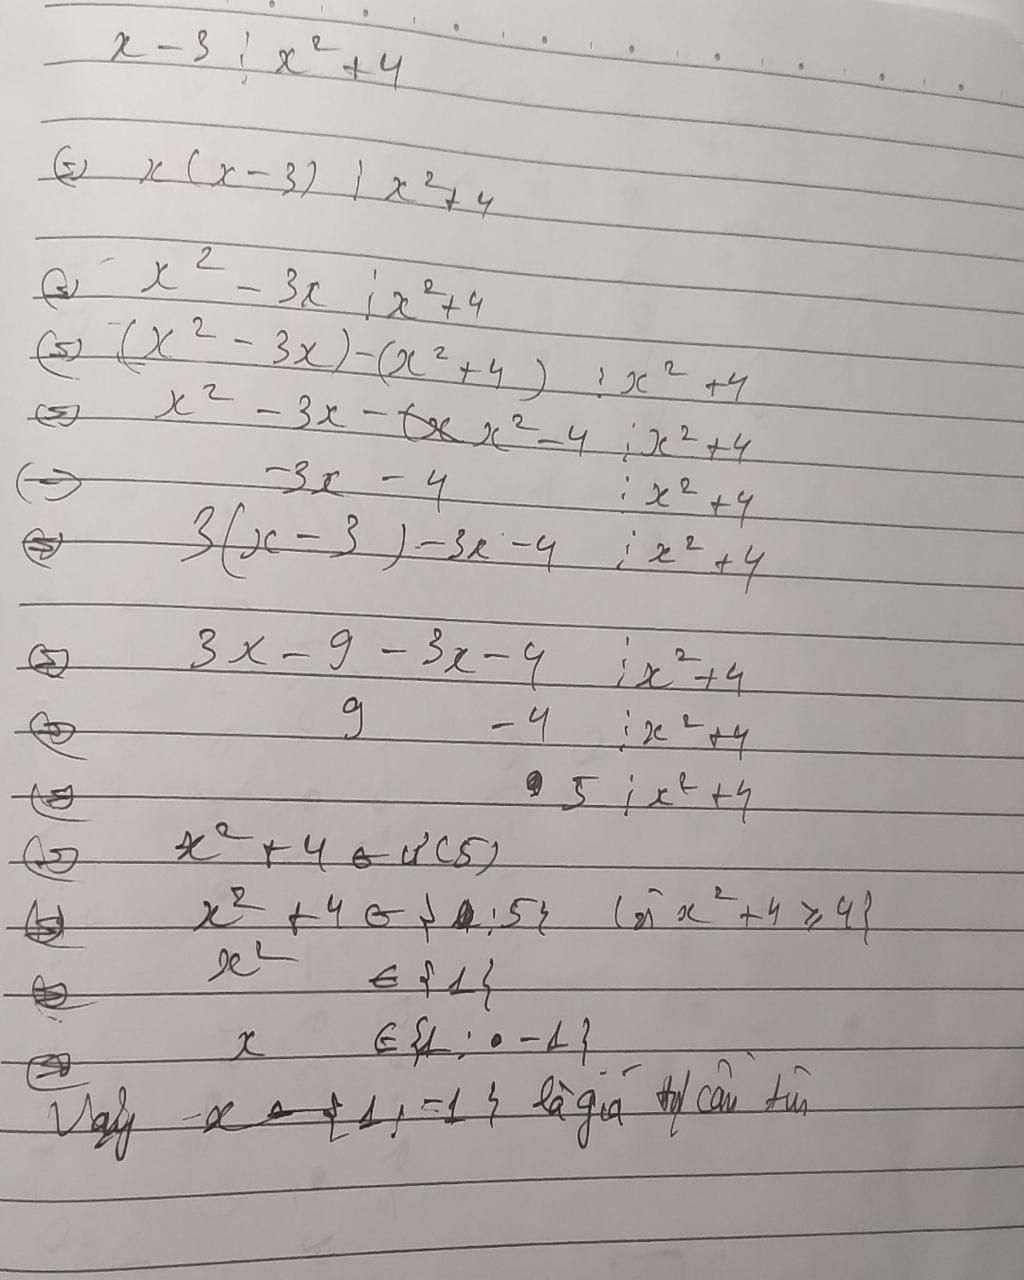 x - 3 ⋮ x² + 4
⇔ x(x - 3) ⋮ x² + 4
⇔ x² - 3x ⋮ x² + 4
⇔ (x² - 3x) - (x² + 4) ⋮ x² + 4
⇔ x² - 3x - x² - 4 ⋮ x² + 4
⇔ -3x - 4 ⋮ x² + 4
⇔ 3(x - 3) - 3x - 4 ⋮ x² + 4
⇔ 3x - 9 - 3x - 4 ⋮ x² + 4
⇔ 9 - 4 ⋮ x² + 4
⇔ 5 ⋮ x² + 4
⇔ x² + 4 ∈ Ư(5)
⇔ x² + 4 ∈ { ; 5} (vì x² + 4 ≥ 4}
⇔ x² ∈ {1}
⇔ x ∈ {1; -1}
Vậy x ∈ {1; -1} là giá trị cần tìm